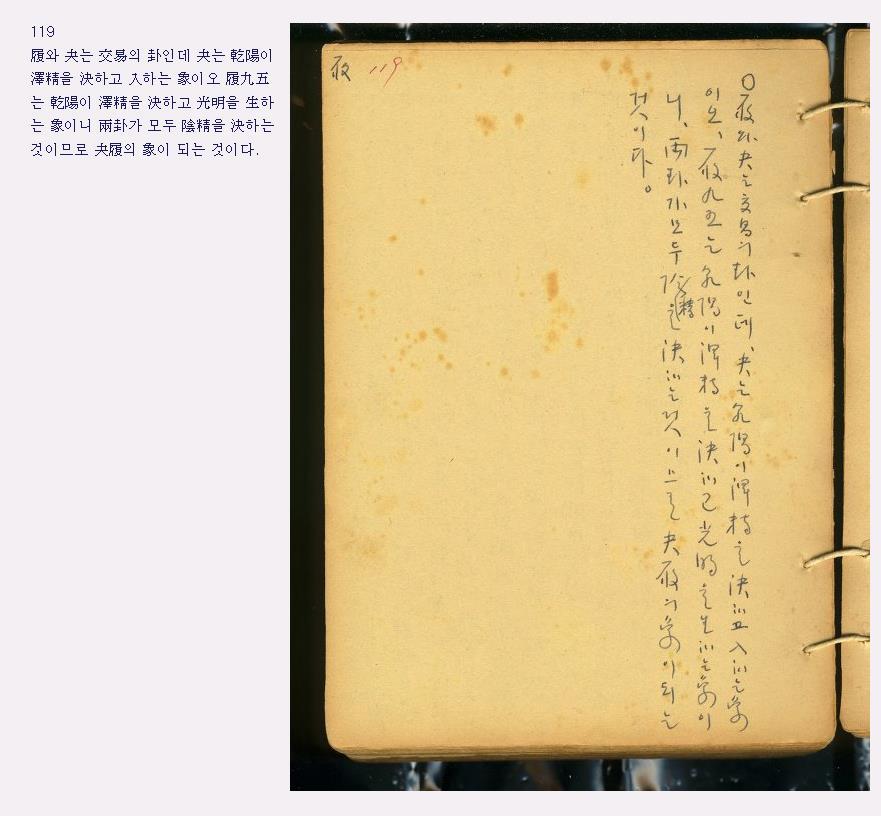 119
履와 夬는 交易의 卦인데 夬는 乾陽이
澤精을 決하고 入하는 象이오 履九五
는 乾陽이 澤精을 決하고 光明을 生하
는 象이니 兩卦가 모두 陰精을 決하는
것이므로 夬履의 象이 되는 것이다.
履 119
○履와 夬는 交易의 卦인데, 夬는 乾陽이 澤精을 決하고 入하는 象
이오, 履九五는 乾陽이 澤精을 決하고 光明을 生하는 象이
니, 兩卦가 모두 陰精을 決하는 것이므로 夬履의 象이 되는
것이다。